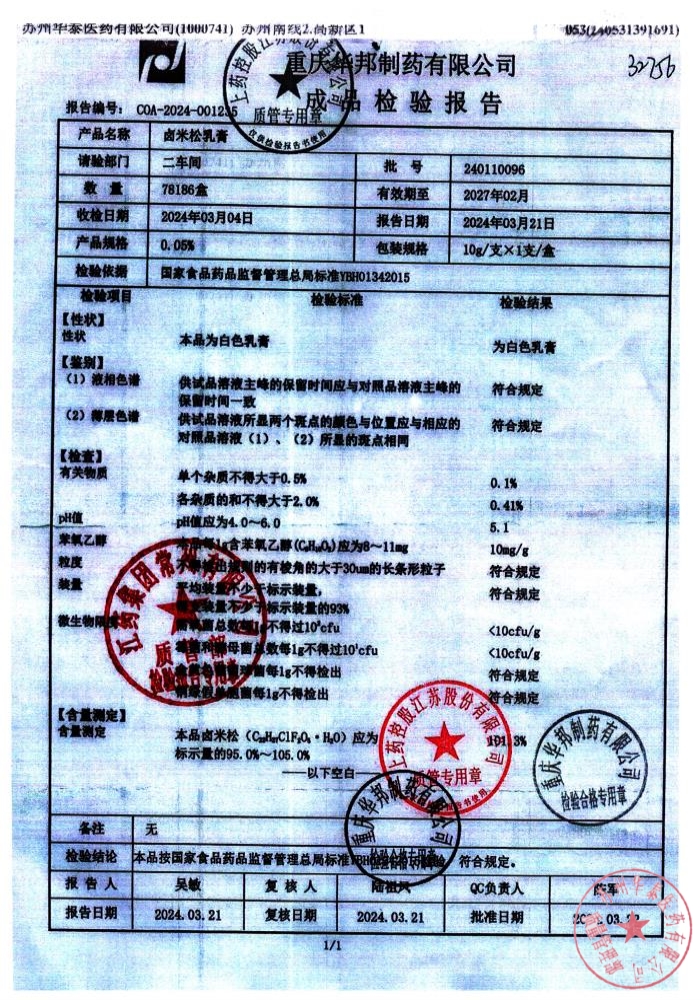 苏州华泰医药有限公司(1000741) 苏州南线2.高新区1 053(240531391691)
重庆华邦制药有限公司
32756
成品检验报告
报告编号： COA-2024-001235
上药控股江苏股份有限公司
质管专用章
仅供检验报告书使用
产品名称 卤米松乳膏
请验部门 二车间 批 号 240110096
数 量 78186盒 有效期至 2027年02月
收检日期 2024年03月04日 报告日期 2024年03月21日
产品规格 0.05% 包装规格 10g/支×1支/盒
检验依据 国家食品药品监督管理总局标准YBH01342015
检验项目 检验标准 检验结果
【性状】
性状 本品为白色乳膏 为白色乳膏
【鉴别】
（1）液相色谱 供试品溶液主峰的保留时间应与对照品溶液主峰的 符合规定
保留时间一致
（2）薄层色谱 供试品溶液所显两个斑点的颜色与位置应与相应的 符合规定
对照品溶液（1）、（2）所显的斑点相同
【检查】
有关物质 单个杂质不得大于0.5% 0.1%
各杂质的和不得大于2.0% 0.41%
pH值 pH值应为4.0～6.0 5.1
苯氧乙醇 本品每1g含苯氧乙醇(C₈H₁₀O₂)应为8～11mg 10mg/g
粒度 的有棱角的大于30um的长条形粒子 符合规定
装量 平均装量不少于标示装量， 符合规定
装量不少于标示装量的93%
微生物限度 菌总数每1g不得过10²cfu <10cfu/g
霉菌和酵母菌总数每1g不得过10¹cfu <10cfu/g
球菌每1g不得检出 符合规定
胞菌每1g不得检出 符合规定
质管部
【含量测定】
含量测定 本品卤米松（C₂₂H₂₇ClF₂O₅・H₂O）应为 101.3%
标示量的95.0%～105.0%
——以下空白——
上药控股江苏股份有限公司
质管专用章
重庆华邦制药有限公司
检验合格专用章
重庆华邦制药有限公司
检验合格专用章
备注 无
检验结论 本品按国家食品药品监督管理总局标准YBH01342015检验，符合规定。
报 告 人 吴敏 复 核 人 陆祖凤 QC负责人 陈军
报告日期 2024.03.21 复核日期 2024.03.21 批准日期
苏州华泰医药有限公司
1/1